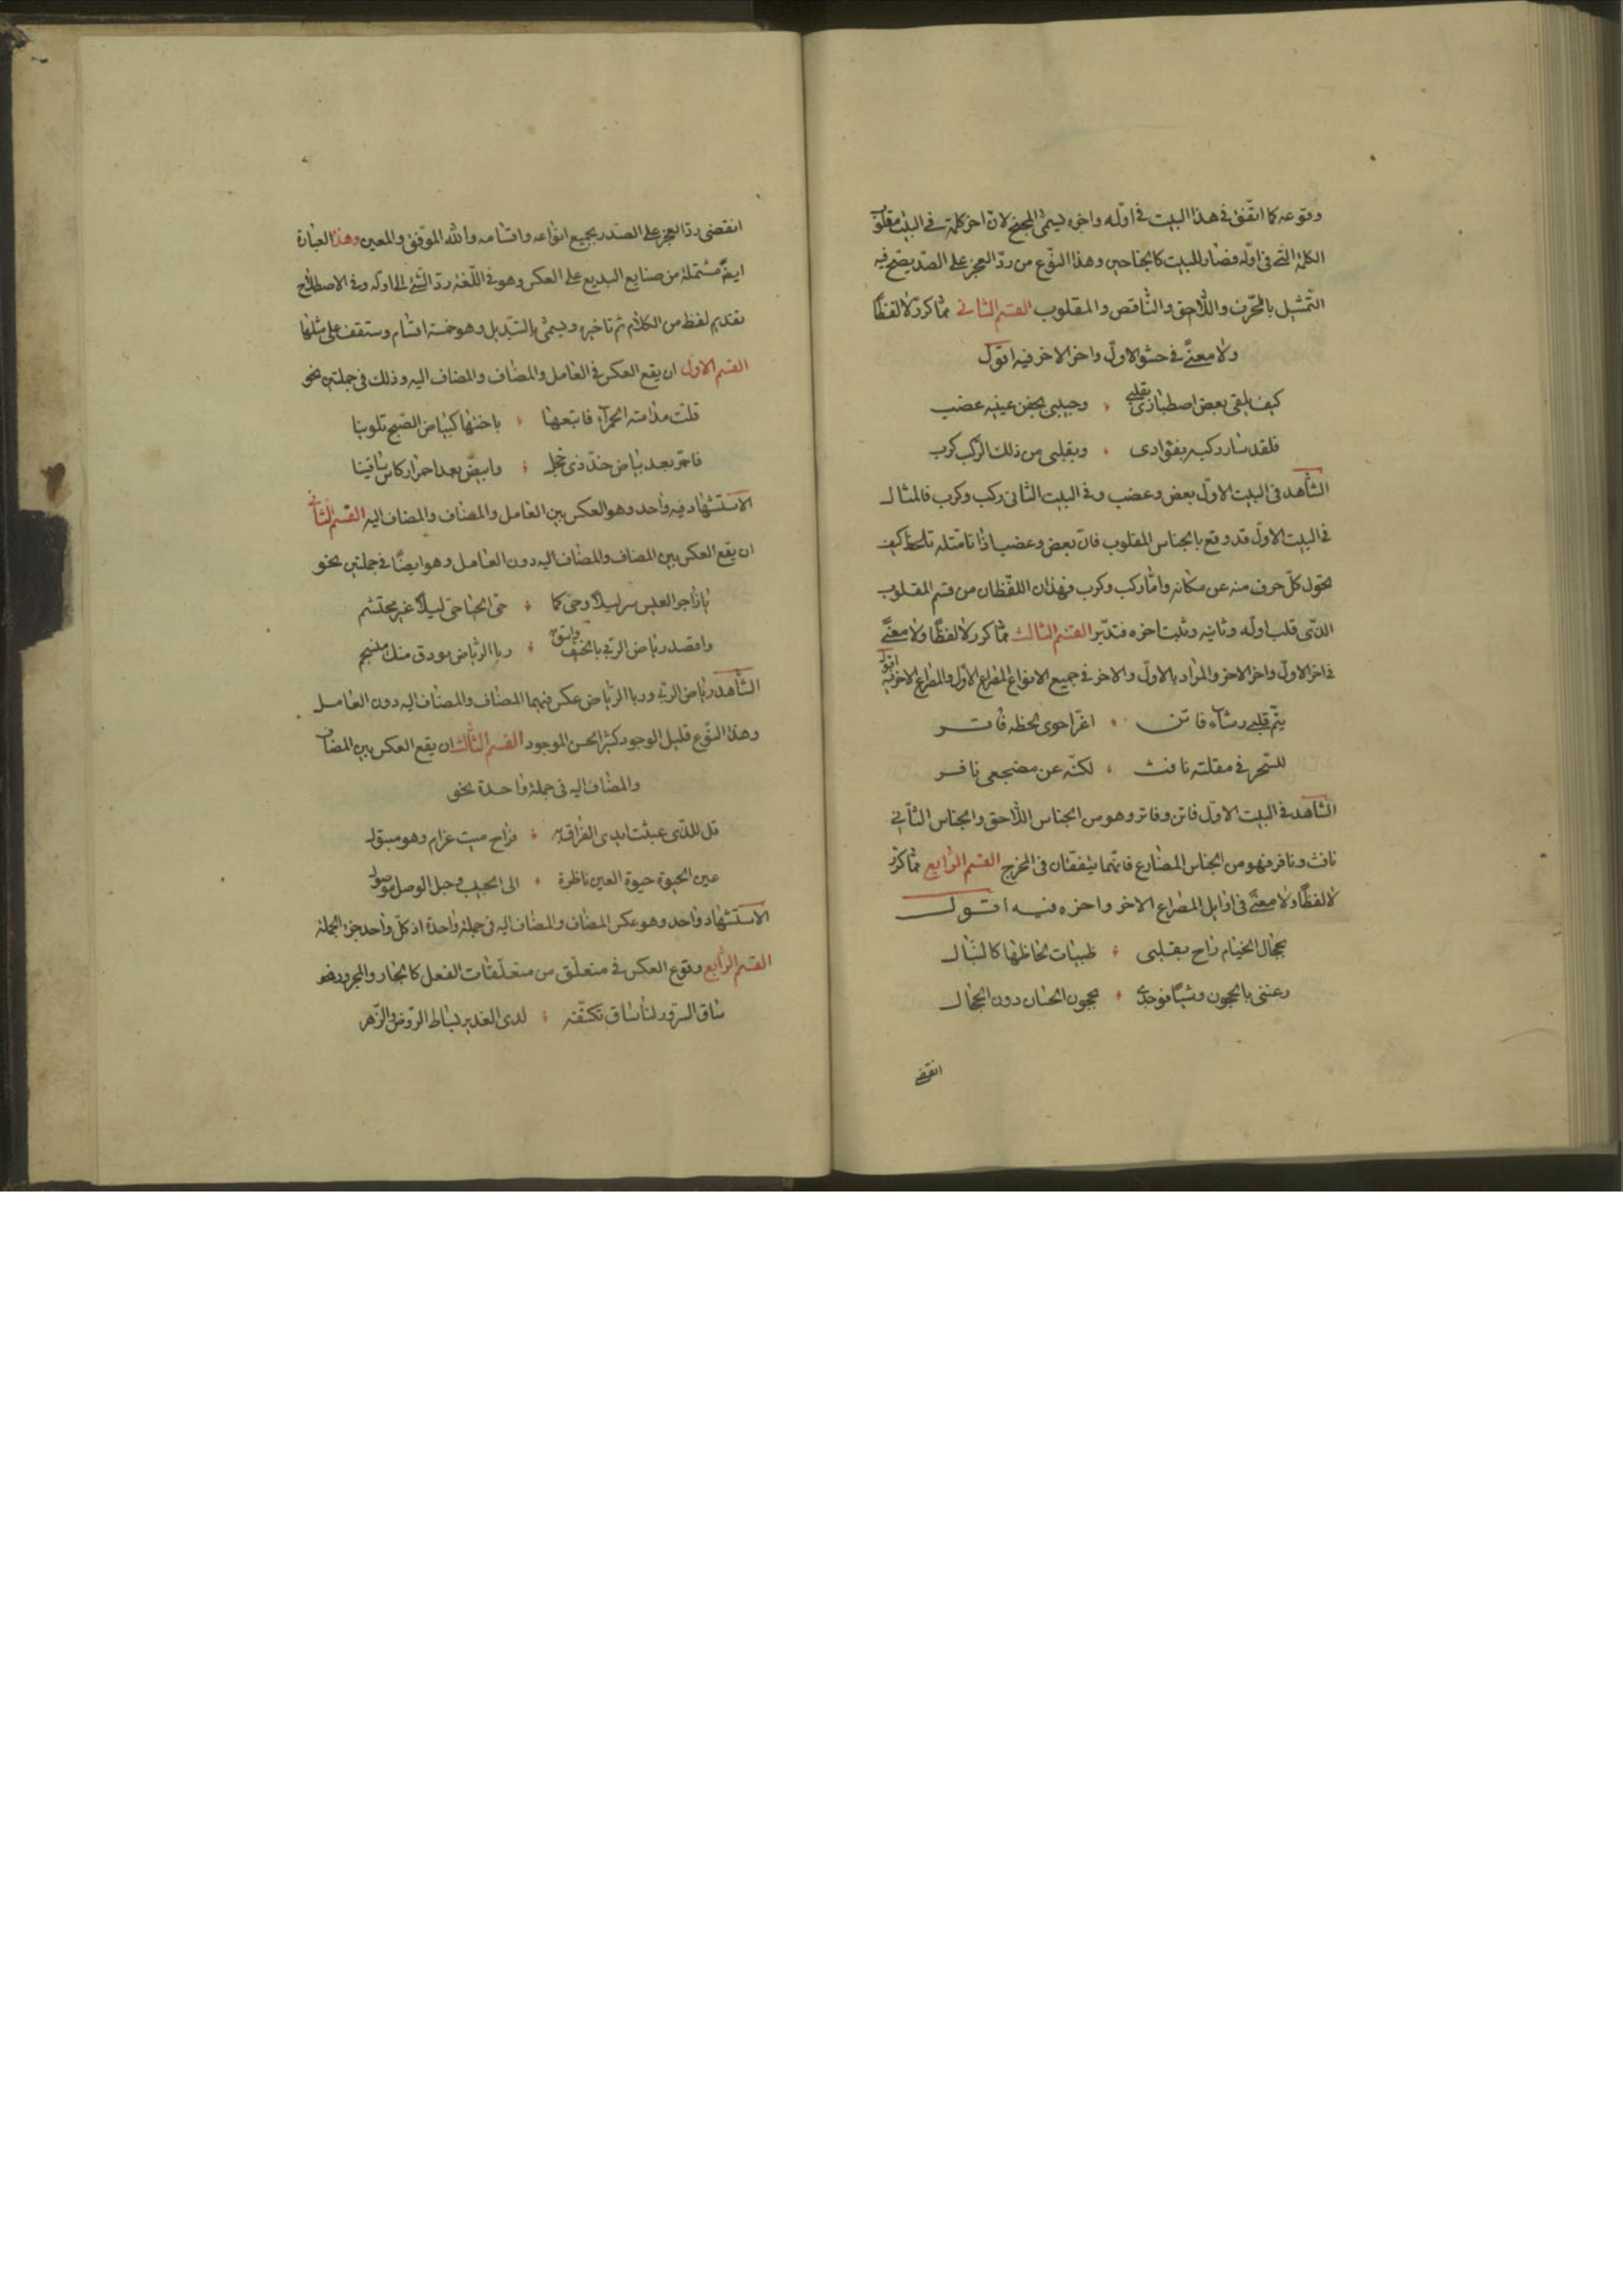 وقوعه كما اتّفق فى هذا البيت فى اوّله واخره يسمّى المجنح لانّ اخر كلمة فى البيت مقلوب
الكلمة الّتى فى اوّله فصار للبيت كالجناحين وهذا النّوع من ردّ العجز على الصّدر يصحّ فيه
التّمثيل بالمحرّف واللّاحق والنّاقص والمقلوب القسم الثانى ممّا كرّر لا لفظًا
ولا معنًى فى حشو الاوّل واخر الاخر فيه اقول
كيف يلقى بعض اصطبارى بقلبى وحبيبى بجفن عينيه عضب
فلقد سار ركبه بفؤادى وبقلبى من ذلك الركب كرب
الشّاهد فى البيت الاوّل بعض وعضب وفى البيت الثانى ركب وكرب فالمثال
فى البيت الاوّل قد وقع بالجناس المقلوب فانّ بعض وعضب اذا تامّلته تلحظ كيف
تحوّل كلّ حرف منه عن مكانه وامّا ركب وكرب فهذان اللّفظان من قسم المقلوب
الذّى قلب اوله وثانيه وثبت اخره فتدبّر القسم الثالث ممّا كرر لا لفظًا ولا معنًى
فى اخر الاوّل واخر الاخر والمراد بالاوّل والاخر فى جميع الانواع المصراع الاوّل والمصراع الاخر فيه اقول
يتّم قلبى رشاء فاتن اغرّ احوى لحظه فاتر
للسّحر فى مقلته نافث لكنّه عن مضجعى نافر
الشّاهد فى البيت الاوّل فاتن وفاتر وهو من الجناس اللّاحق والجناس الثّانى
نافث ونافر فهو من الجناس المضارع فانّهما يتفقان فى المخرج القسم الرّابع ممّا كرّر
لا لفظًا ولا معنًى فى اوايل المصراع الاخر واخره فيه اقول
بحجال الخيام راح بقلبى ظبيات لحاظها كالنّبال
رعننى بالحجون وشبًا فوجدى بحجون الحسان دون الحجال
انقضى
انقضى ردّ العجز على الصّدر بجميع انواعه واقسامه والله الموّفق والمعين وهذا العبارة
ايضًا مشتملة من صنايع البديع على العكس وهو فى اللّغة ردّ الشّئ الى اوله وفى الاصطلاح
تقديم لفظ من الكلام ثم تاخيره ويسمّى بالتّبديل وهو خمسة اقسام وستقف على مثلها
القسم الاول ان يقع العكس فى العامل والمضاف والمضاف اليه وذلك فى جملتين نحو
قلت مدامته الحمراء فاتبعها باختها كبياض الصّبح تلوينا
فاحمّر بعد بياض خدّ ذى خجل وابيضّ بعد احمرار كاس ساقينا
الاستشهاد فيه واحد وهو العكس بين العامل والمضاف والمضاف اليه القسم الثّانى
ان يقع العكس بين المضاف والمضاف اليه دون العامل وهو ايضًا فى جملتين نحو
يا زاجر العيس سر ليلًا وحىّ كما حىّ الحيا حىّ ليلًا غير محتشم
واقصد رياض الربى بالخيف واسق ربا الرّياض بودق منك منسجم
الشّاهد رياض الربى وربا الرّياض عكس فيهما المضاف والمضاف اليه دون العامل
وهذا النّوع قليل الوجود كثير الحسن الموجود القسم الثّالث ان يقع العكس بين المضاف
والمضاف اليه فى جملة واحدة نحو
قل للذّى عبثت ايدى الفراق به فراح ميت غرام وهو مبتول
عين الحيوة حيوة العين ناظرة الى الحبيب وحبل الوصل موصول
الاستشهاد واحد وهو عكس المضاف والمضاف اليه فى جملة واحدة اذ كلّ واحد جزء الجملة
القسم الرّابع وقوع العكس فى متعلّق من متعلّقات الفعل كالجار والمجرور نحو
ساق السّرور لنا ساق تكنّفته لدى الغدير بساط الرّوض والزّهر